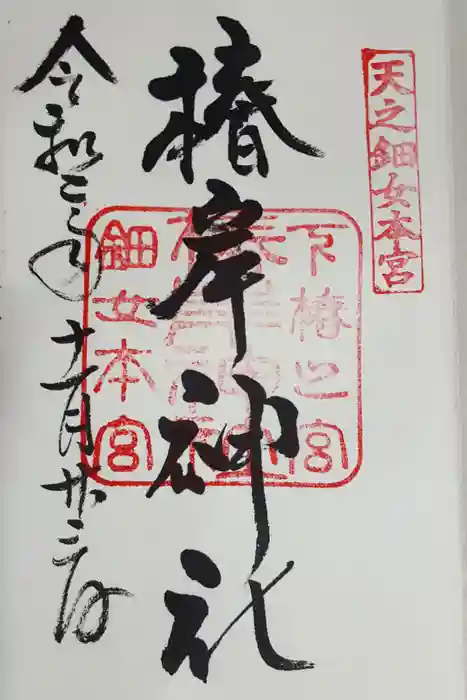 天之鈿女本宮
椿岸神社
下椿之宮
鈿女本宮
令和二年十一月廿三日